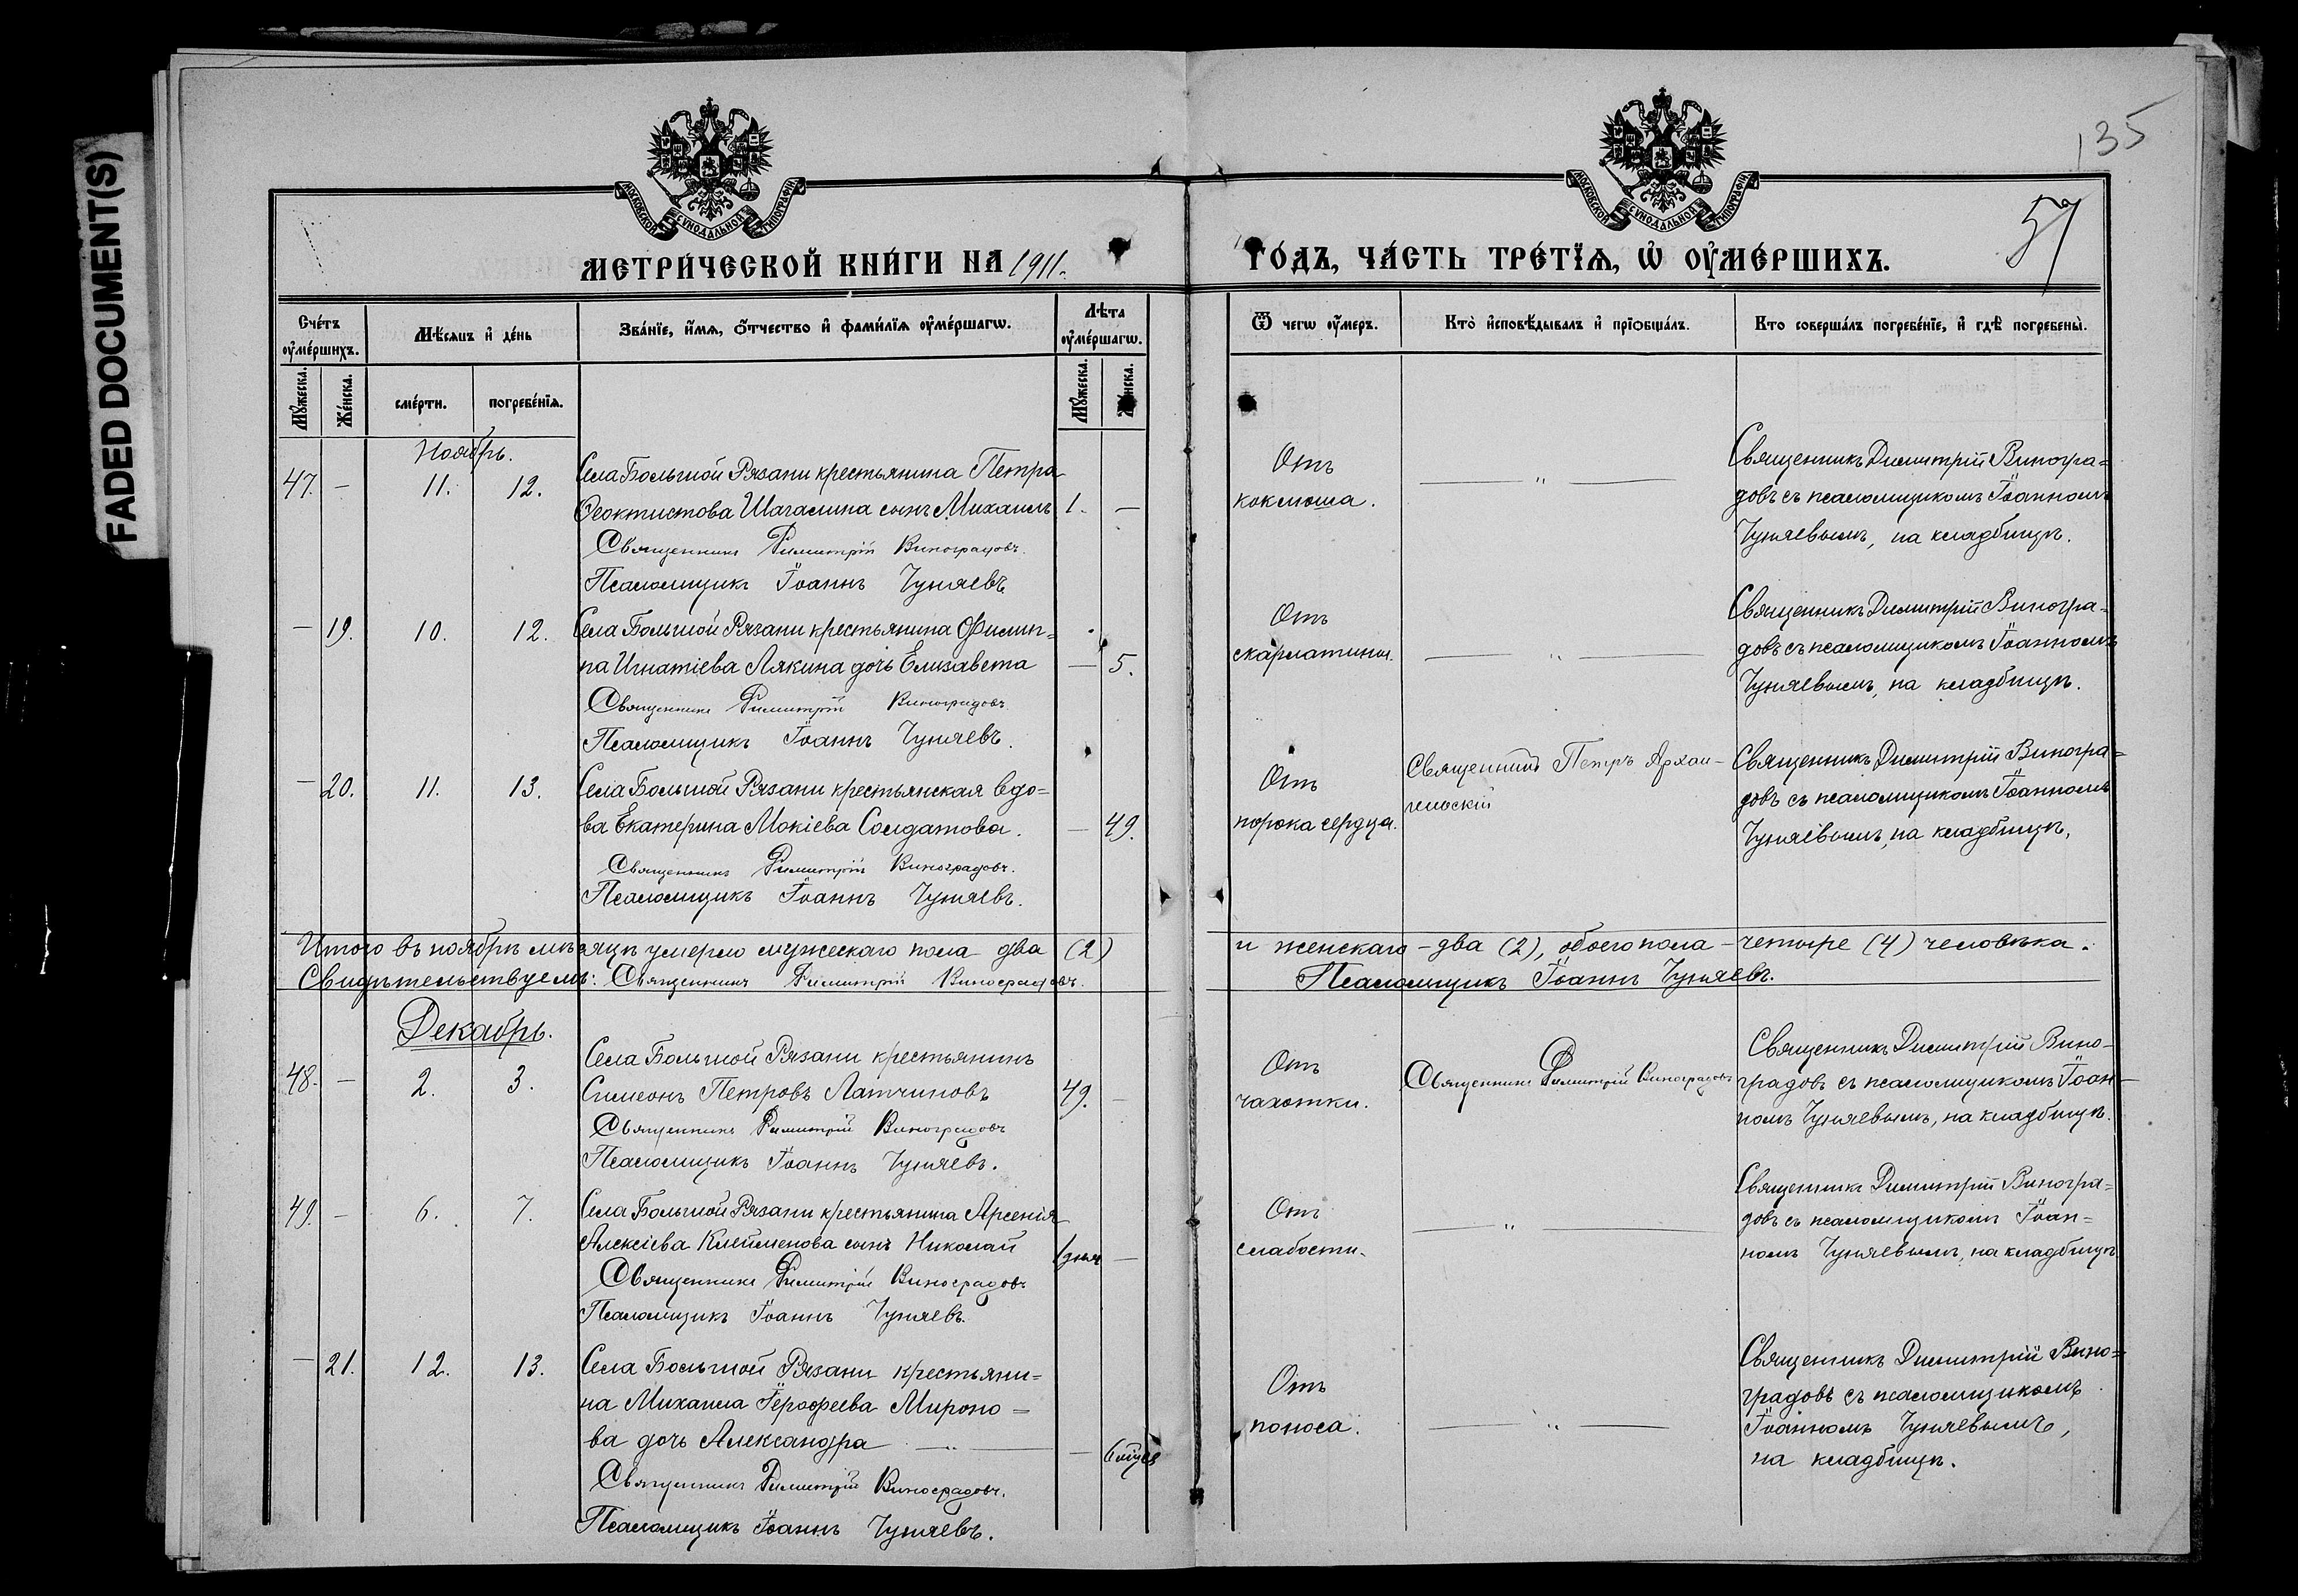 FADED DOCUMENT(S)
135
57
МОСКОВСКОЙ СѴНОДАЛЬНОЙ ТИПОГРАФІИ
МОСКОВСКОЙ СѴНОДАЛЬНОЙ ТИПОГРАФІИ
МЕТРИ́ЧЕСКОЙ КНИ́ГИ НА 1911.
ГО́ДЪ, ЧА́СТЬ ТРЕ́ТЇѦ, Ѡ҆ ОУ҆МЕ́РШИХЪ.
Сче́тъ оу҆ме́ршихъ.
Мѣ́сѧцъ и҆ де́нь
Зва́нїе, и҆́мѧ, ѻ҆́тчество и҆ фами́лїѧ оу҆ме́ршагѡ.
Лѣ́та оу҆ме́ршагѡ.
Ѿ чегѡ̀ оу҆́меръ.
Кто̀ и҆сповѣ́дывалъ и҆ прїобща́лъ.
Кто̀ соверша́лъ погребе́нїе, и҆ гдѣ̀ погребены̀.
Мꙋ́жеска.
Же́нска.
сме́рти.
погребе́нїѧ.
Мꙋ́жеска.
Же́нска.
Ноябрь.
47. — 11. 12.
Села Большой Рязани крестьянина Петра
Ѳеоктистова Шагалина сынъ Михаилъ 1. —
Священникъ Димитрій Виноградовъ.
Псаломщикъ Іоаннъ Чуняевъ
Отъ
коклюша.
— „ —
Священникъ Димитрій Виногра=
довъ съ псаломщикомъ Іоанномъ
Чуняевымъ, на кладбищѣ.
— 19. 10. 12.
Села Большой Рязани крестьянина Филип=
па Игнатіева Лякина дочь Елизавета — 5.
Священникъ Димитрій Виноградовъ
Псаломщикъ Іоаннъ Чуняевъ.
Отъ
скарлатины.
— „ —
Священникъ Димитрій Виногра=
довъ съ псаломщикомъ Іоанномъ
Чуняевымъ, на кладбищѣ.
— 20. 11. 13.
Села Большой Рязани крестьянская вдо=
ва Екатерина Мокіева Солдатова. — 49.
Священникъ Димитрій Виноградовъ.
Псаломщикъ Іоаннъ Чуняевъ.
Отъ
порока сердца.
Священникъ Петръ Архан-
гельскій
Священникъ Димитрій Виногра=
довъ съ псаломщикомъ Іоанномъ
Чуняевымъ, на кладбищѣ.
Итого въ ноябрѣ мѣсяцѣ умерло мужескаго пола два (2)
и женскаго – два (2), обоего пола – четыре (4) человѣка.
Свидѣтельствуемъ: Священникъ Димитрій Виноградовъ.
Псаломщикъ Іоаннъ Чуняевъ.
Декабрь.
48. — 2. 3.
Села Большой Рязани крестьянинъ
Симеонъ Петровъ Латчиновъ 49. —
Священникъ Димитрій Виноградовъ
Псаломщикъ Іоаннъ Чуняевъ.
Отъ
чахотки.
Священникъ Димитрій Виноградовъ
Священникъ Димитрій Вино-
градовъ съ псаломщикомъ Іоан-
номъ Чуняевымъ, на кладбищѣ.
49. — 6. 7.
Села Большой Рязани крестьянина Арсенія
Алексіева Клейменова сынъ Николай 1 дня —
Священникъ Димитрій Виноградовъ
Псаломщикъ Іоаннъ Чуняевъ.
Отъ
слабости.
— „ —
Священникъ Димитрій Виногра=
довъ съ псаломщикомъ Іоан=
номъ Чуняевымъ, на кладбищѣ
— 21. 12. 13.
Села Большой Рязани крестьяни=
на Михаила Іероѳеева Мироно=
ва дочь Александра — „ — — 6 мцевъ
Священникъ Димитрій Виноградовъ.
Псаломщикъ Іоаннъ Чуняевъ.
Отъ
поноса.
— „ —
Священникъ Димитрій Вино=
градовъ съ псаломщикомъ
Іоанномъ Чуняевымъ,
на кладбищѣ.